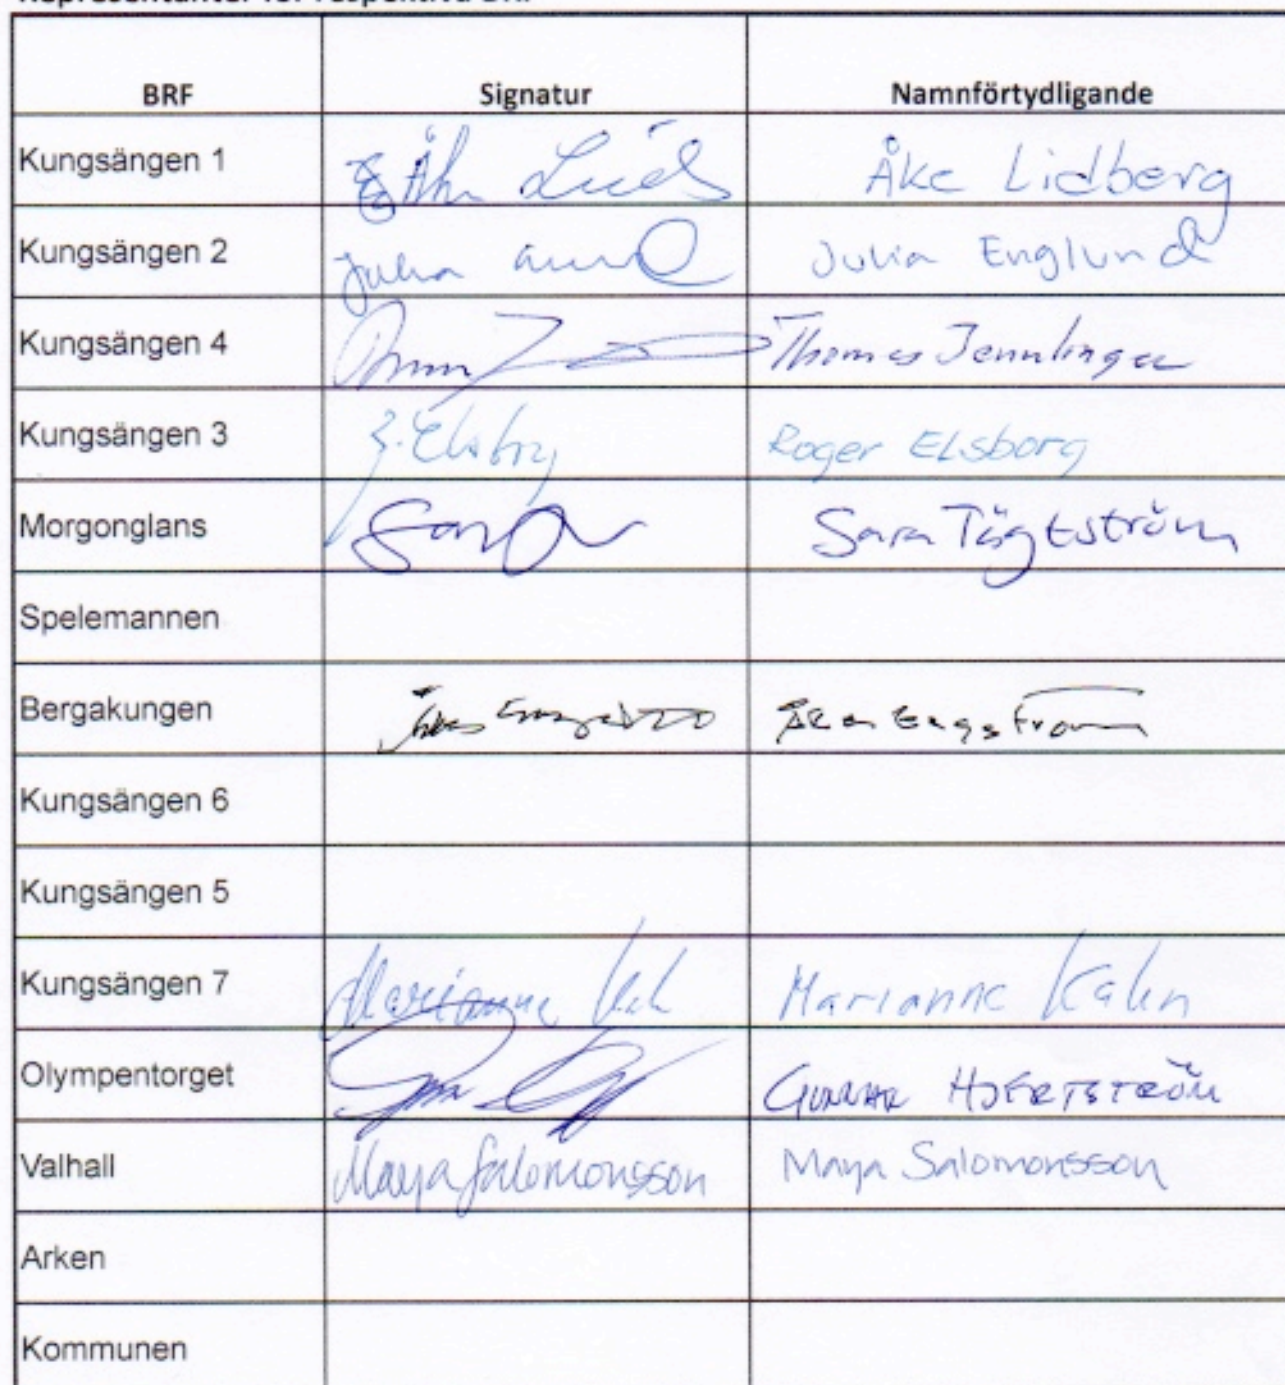 Representanter för respektive BRF
BRF Signatur Namnförtydligande
Kungsängen 1 Åke Lidberg
Kungsängen 2 Julia Julia Englund
Kungsängen 4 Thomas
Kungsängen 3 Roger Elsborg
Morgonglans Sara Sara Tägtström
Spelemannen
Bergakungen Engström
Kungsängen 6
Kungsängen 5
Kungsängen 7 Marianne Marianne Kahn
Olympentorget GUNNAR HJERTSTRÖM
Valhall Maya Salomonsson Maya Salomonsson
Arken
Kommunen